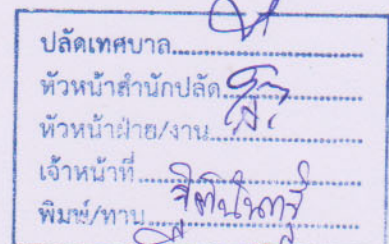 ปลัดเทศบาล
หัวหน้าสำนักปลัด
หัวหน้าฝ่าย/งาน
เจ้าหน้าที่
พิมพ์/ทาน